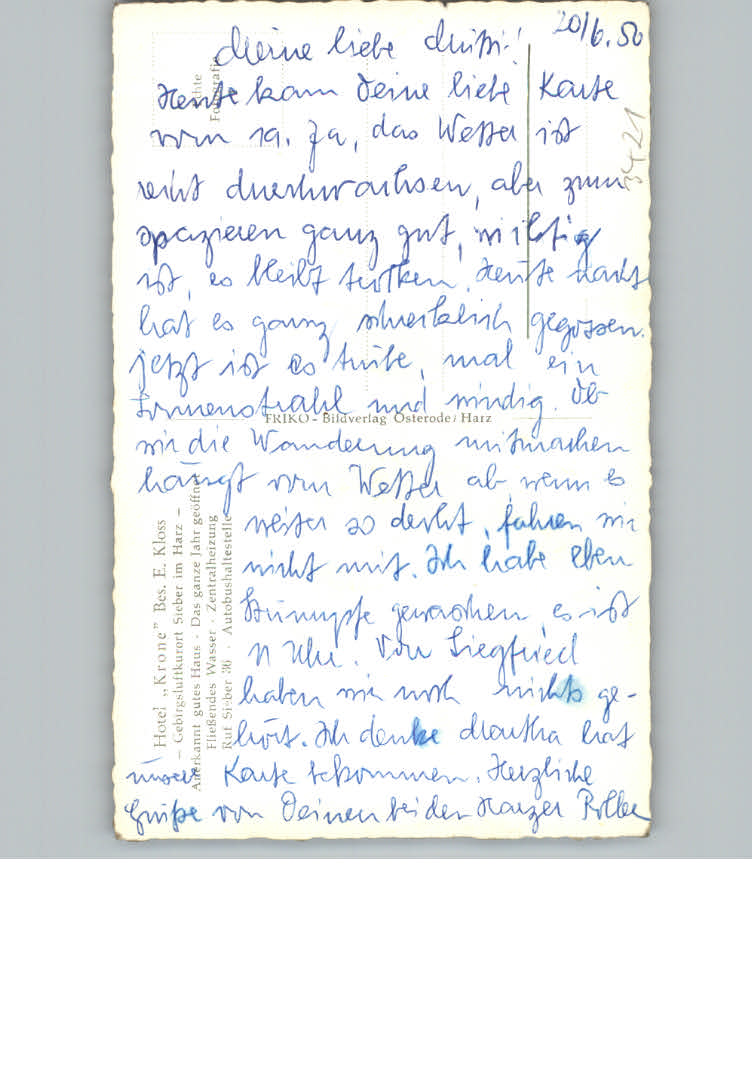 20/6.50
Meine liebe Mutti!
Heute kam Deine liebe Karte
vom 19. Ja, das Wetter ist
recht durchwachsen, aber zum
spazieren ganz gut, wichtig
ist, es bleibt trocken. Heute nacht
hat es ganz schrecklich gegossen.
jetzt ist es trübe, mal ein
Sonnenstrahl und windig. Ob
wir die Wanderung mitmachen
hängt vom Wetter ab, wenn es
weiter so, fahren wir
nicht mit. Ich habe eben
Strümpfe gewaschen, es ist
11 Uhr. Von Siegfried
haben wir noch nichts ge-
hört. Ich denke Martha hat
unsere Karte bekommen. Herzliche
Grüße von Deinen beiden Harzer
3421
Echte
Fotografie
FRIKO - Bildverlag Osterode/Harz
Hotel „Krone" Bes. E. Kloss
– Gebirgsluftkurort Sieber im Harz –
Anerkannt gutes Haus · Das ganze Jahr geöffnet
Fließendes Wasser · Zentralheizung
Ruf Sieber 36 · Autobushaltestelle